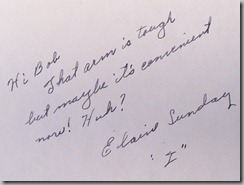 Hi Bob
That arm is tough
but maybe it's convenient
now! Huh?
Elaine Sunday
"I"